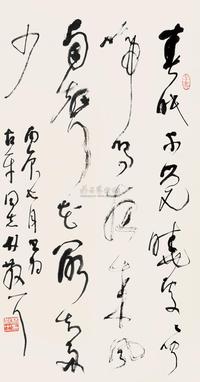 春眠不觉晓处々闻
啼鸟夜来风
雨声花落知多
少
丙辰七月
平同志 林散耳